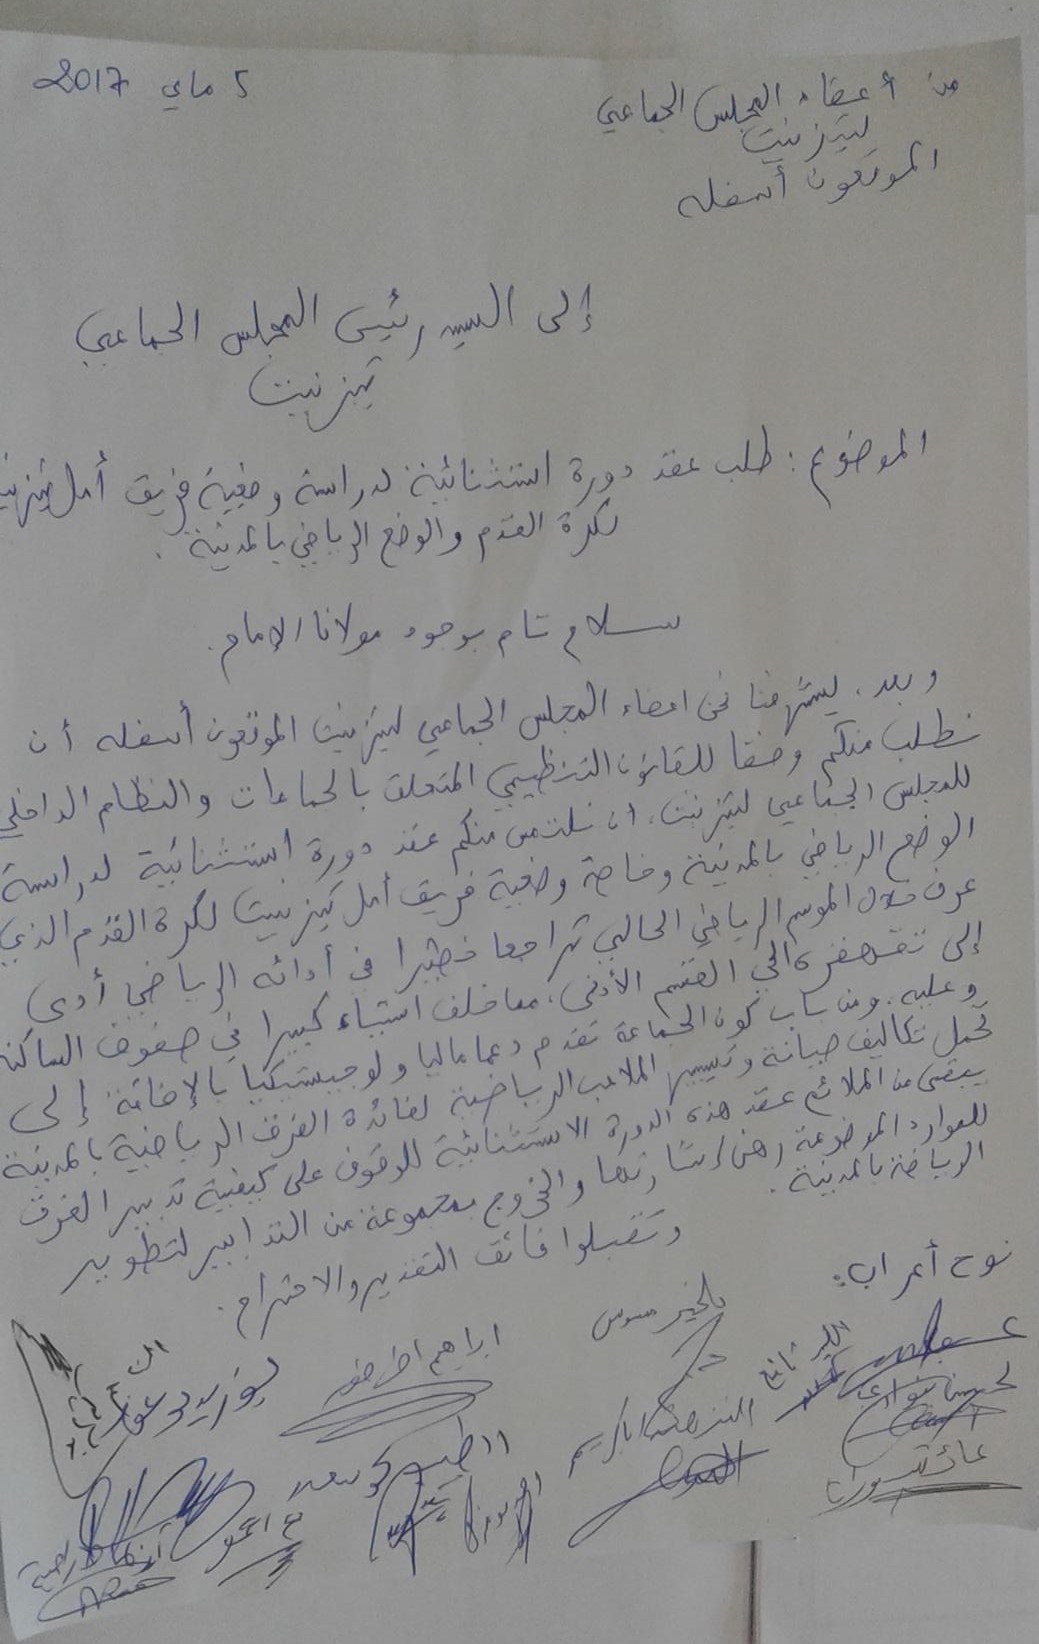 5 ماي 2017
من أعضاء المجلس الجماعي
لتيزنيت
الموقعون أسفله
إلى السيد رئيس المجلس الجماعي
تيزنيت
الموضوع: طلب عقد دورة استثنائية لدراسة وضعية فريق أمل تيزنيت
لكرة القدم والوضع الرياضي بالمدينة.
سلام تام بوجود مولانا الإمام.
وبعد، يشرفنا نحن اعضاء المجلس الجماعي لتيزنيت الموقعون أسفله أن
نطلب منكم وفقا للقانون التنظيمي المتعلق بالجماعات والنظام الداخلي
للمجلس الجماعي لتيزنيت، ان نلتمس منكم عقد دورة استثنائية لدراسة
الوضع الرياضي بالمدينة وخاصة وضعية فريق أمل تيزنيت لكرة القدم الذي
عرف خلال الموسم الرياضي الحالي تراجعا خطيرا في أدائه الرياضي أدى
إلى تقهقره الى القسم الأدنى، مما خلف استياء كبيرا في صفوف الساكنة
وعليه، ومن باب كون الجماعة تقدم دعما ماليا ولوجيستيكيا بالإضافة إلى
تحمل تكاليف صيانة وتسيير الملاعب الرياضية لفائدة الفرق الرياضية بالمدينة
يبقى من الملائم عقد هذه الدورة الاستثنائية للوقوف على كيفية تدبير الفرق
للموارد الموضوعة رهن إشارتها والخروج بمجموعة من التدابير لتطوير
الرياضة بالمدينة.
وتقبلوا فائق التقدير والاحترام.
نوح أعراب:
بلخير مسوس
ابراهيم
لحسن بنواري